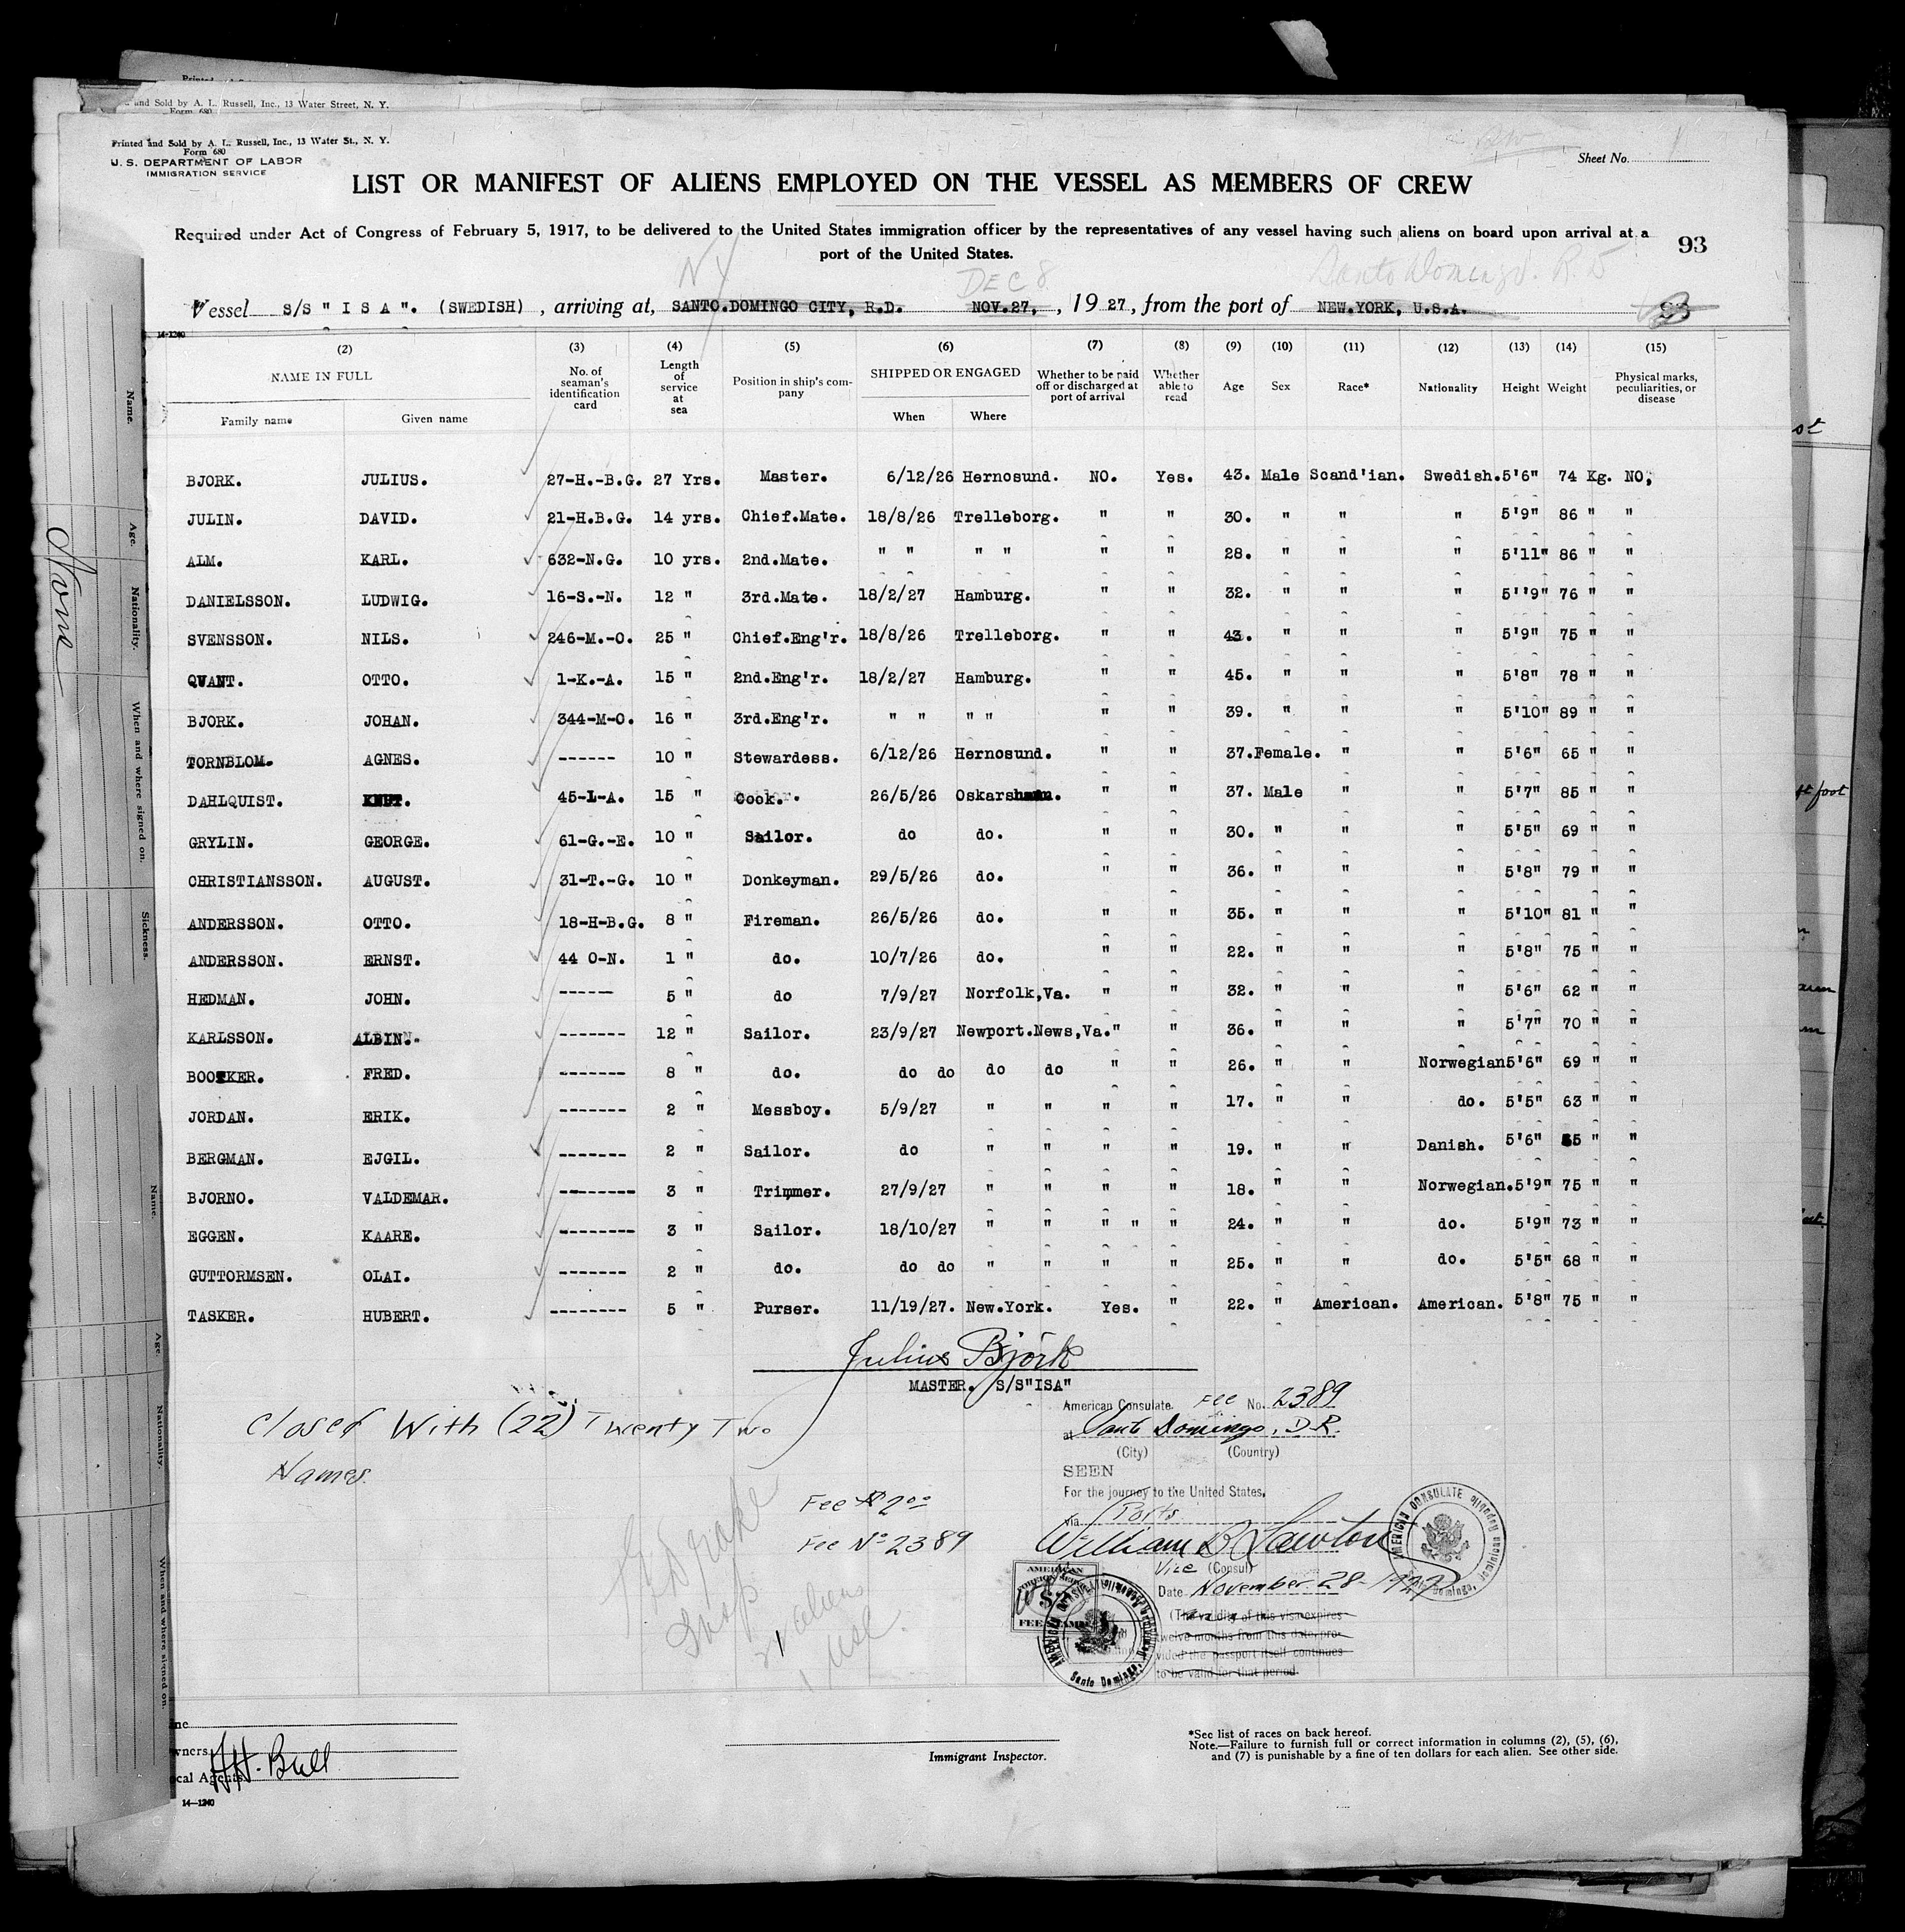 Printed
and Sold by A. L. Russell, Inc., 13 Water Street, N. Y.
Form 680
Printed and Sold by A. L. Russell, Inc., 13 Water St., N. Y.
Form 680
U. S. DEPARTMENT OF LABOR
IMMIGRATION SERVICE
Sheet No. 1
LIST OR MANIFEST OF ALIENS EMPLOYED ON THE VESSEL AS MEMBERS OF CREW
Required under Act of Congress of February 5, 1917, to be delivered to the United States immigration officer by the representatives of any vessel having such aliens on board upon arrival at a
port of the United States.
93
NY DEC 8 Santo Domingo. R.D
Vessel S/S " I S A ". (SWEDISH) , arriving at, SANTO.DOMINGO CITY, R.D. NOV.27, , 1927, from the port of NEW.YORK, U.S.A.
14-1240
(2) (3) (4) (5) (6) (7) (8) (9) (10) (11) (12) (13) (14) (15)
NAME IN FULL No. of seaman's identification card Length of service at sea Position in ship's company SHIPPED OR ENGAGED Whether to be paid off or discharged at port of arrival Whether able to read Age Sex Race* Nationality Height Weight Physical marks, peculiarities, or disease
Family name Given name When Where
BJORK. JULIUS. 27-H.-B.G. 27 Yrs. Master. 6/12/26 Hernosund. NO. Yes. 43. Male Scand'ian. Swedish. 5'6" 74 Kg. NO,
JULIN. DAVID. 21-H.B.G. 14 yrs. Chief.Mate. 18/8/26 Trelleborg. " " 30. " " " 5'9" 86 " "
ALM. KARL. 632-N.G. 10 yrs. 2nd.Mate. " " " " " " 28. " " " 5'11" 86 " "
DANIELSSON. LUDWIG. 16-S.-N. 12 " 3rd.Mate. 18/2/27 Hamburg. " " 32. " " " 5''9" 76 " "
SVENSSON. NILS. 246-M.-O. 25 " Chief.Eng'r. 18/8/26 Trelleborg. " " 43. " " " 5'9" 75 " "
QVANT. OTTO. 1-K.-A. 15 " 2nd.Eng'r. 18/2/27 Hamburg. " " 45. " " " 5'8" 78 " "
BJORK. JOHAN. 344-M-O. 16 " 3rd.Eng'r. " " " " " " 39. " " " 5'10" 89 " "
TORNBLOM. AGNES. ------ 10 " Stewardess. 6/12/26 Hernosund. " " 37. Female. " " 5'6" 65 " "
DAHLQUIST. KNUT. 45-L-A. 15 " Cook. 26/5/26 Oskarshamn. " " 37. Male " " 5'7" 85 " "
GRYLIN. GEORGE. 61-G.-E. 10 " Sailor. do do. " " 30. " " " 5'5" 69 " "
CHRISTIANSSON. AUGUST. 31-T.-G. 10 " Donkeyman. 29/5/26 do. " " 36. " " " 5'8" 79 " "
ANDERSSON. OTTO. 18-H-B.G. 8 " Fireman. 26/5/26 do. " " 35. " " " 5'10" 81 " "
ANDERSSON. ERNST. 44 O-N. 1 " do. 10/7/26 do. " " 22. " " " 5'8" 75 " "
HEDMAN. JOHN. ------ 5 " do 7/9/27 Norfolk,Va. " " 32. " " " 5'6" 62 " "
KARLSSON. ALBIN. ------- 12 " Sailor. 23/9/27 Newport.News,Va." " 36. " " " 5'7" 70 " "
BOOTKER. FRED. ------- 8 " do. do do do do " " 26. " " Norwegian 5'6" 69 " "
JORDAN. ERIK. ------- 2 " Messboy. 5/9/27 " " " " 17. " " do. 5'5" 63 " "
BERGMAN. EJGIL. ------- 2 " Sailor. do " " " " 19. " " Danish. 5'6" 65 " "
BJORNO. VALDEMAR. -------- 3 " Trimmer. 27/9/27 " " " " 18. " " Norwegian. 5'9" 75 " "
EGGEN. KAARE. -------- 3 " Sailor. 18/10/27 " " " " " 24. " " do. 5'9" 73 " "
GUTTORMSEN. OLAI. ------- 2 " do. do do " " " " 25. " " do. 5'5" 68 " "
TASKER. HUBERT. -------- 5 " Purser. 11/19/27. New.York. Yes. " 22. " American. American. 5'8" 75 " "
Julius Björk
MASTER. S/S"ISA"
Closed With (22) Twenty Two
Names.
Fee $2.00
Fee No 2389
American Consulate. Fee No. 2389
at Santo Domingo, D.R.
(City) (Country)
SEEN
For the journey to the United States,
via Ports
William B Lawton
Vice (Consul)
Date November 28 - 1927
(The validity of this visa expires
twelve months from this date, pro-
vided the passport itself continues
to be valid for that period.
AMERICAN CONSULATE
Santo Domingo, Dominican Republic
AMERICAN
FOREIGN SERVICE
FEE STAMP
AMERICAN CONSULATE
Santo Domingo,
21 aliens
1 USC
Owners
Local Agents A.H. Bull
14—1240
Immigrant Inspector.
*See list of races on back hereof.
Note.—Failure to furnish full or correct information in columns (2), (5), (6),
and (7) is punishable by a fine of ten dollars for each alien. See other side.
Name.
Age.
Nationality.
When and where signed on.
Sickness.
None
Name.
Age.
Nationality.
When and where signed on.
st
foot